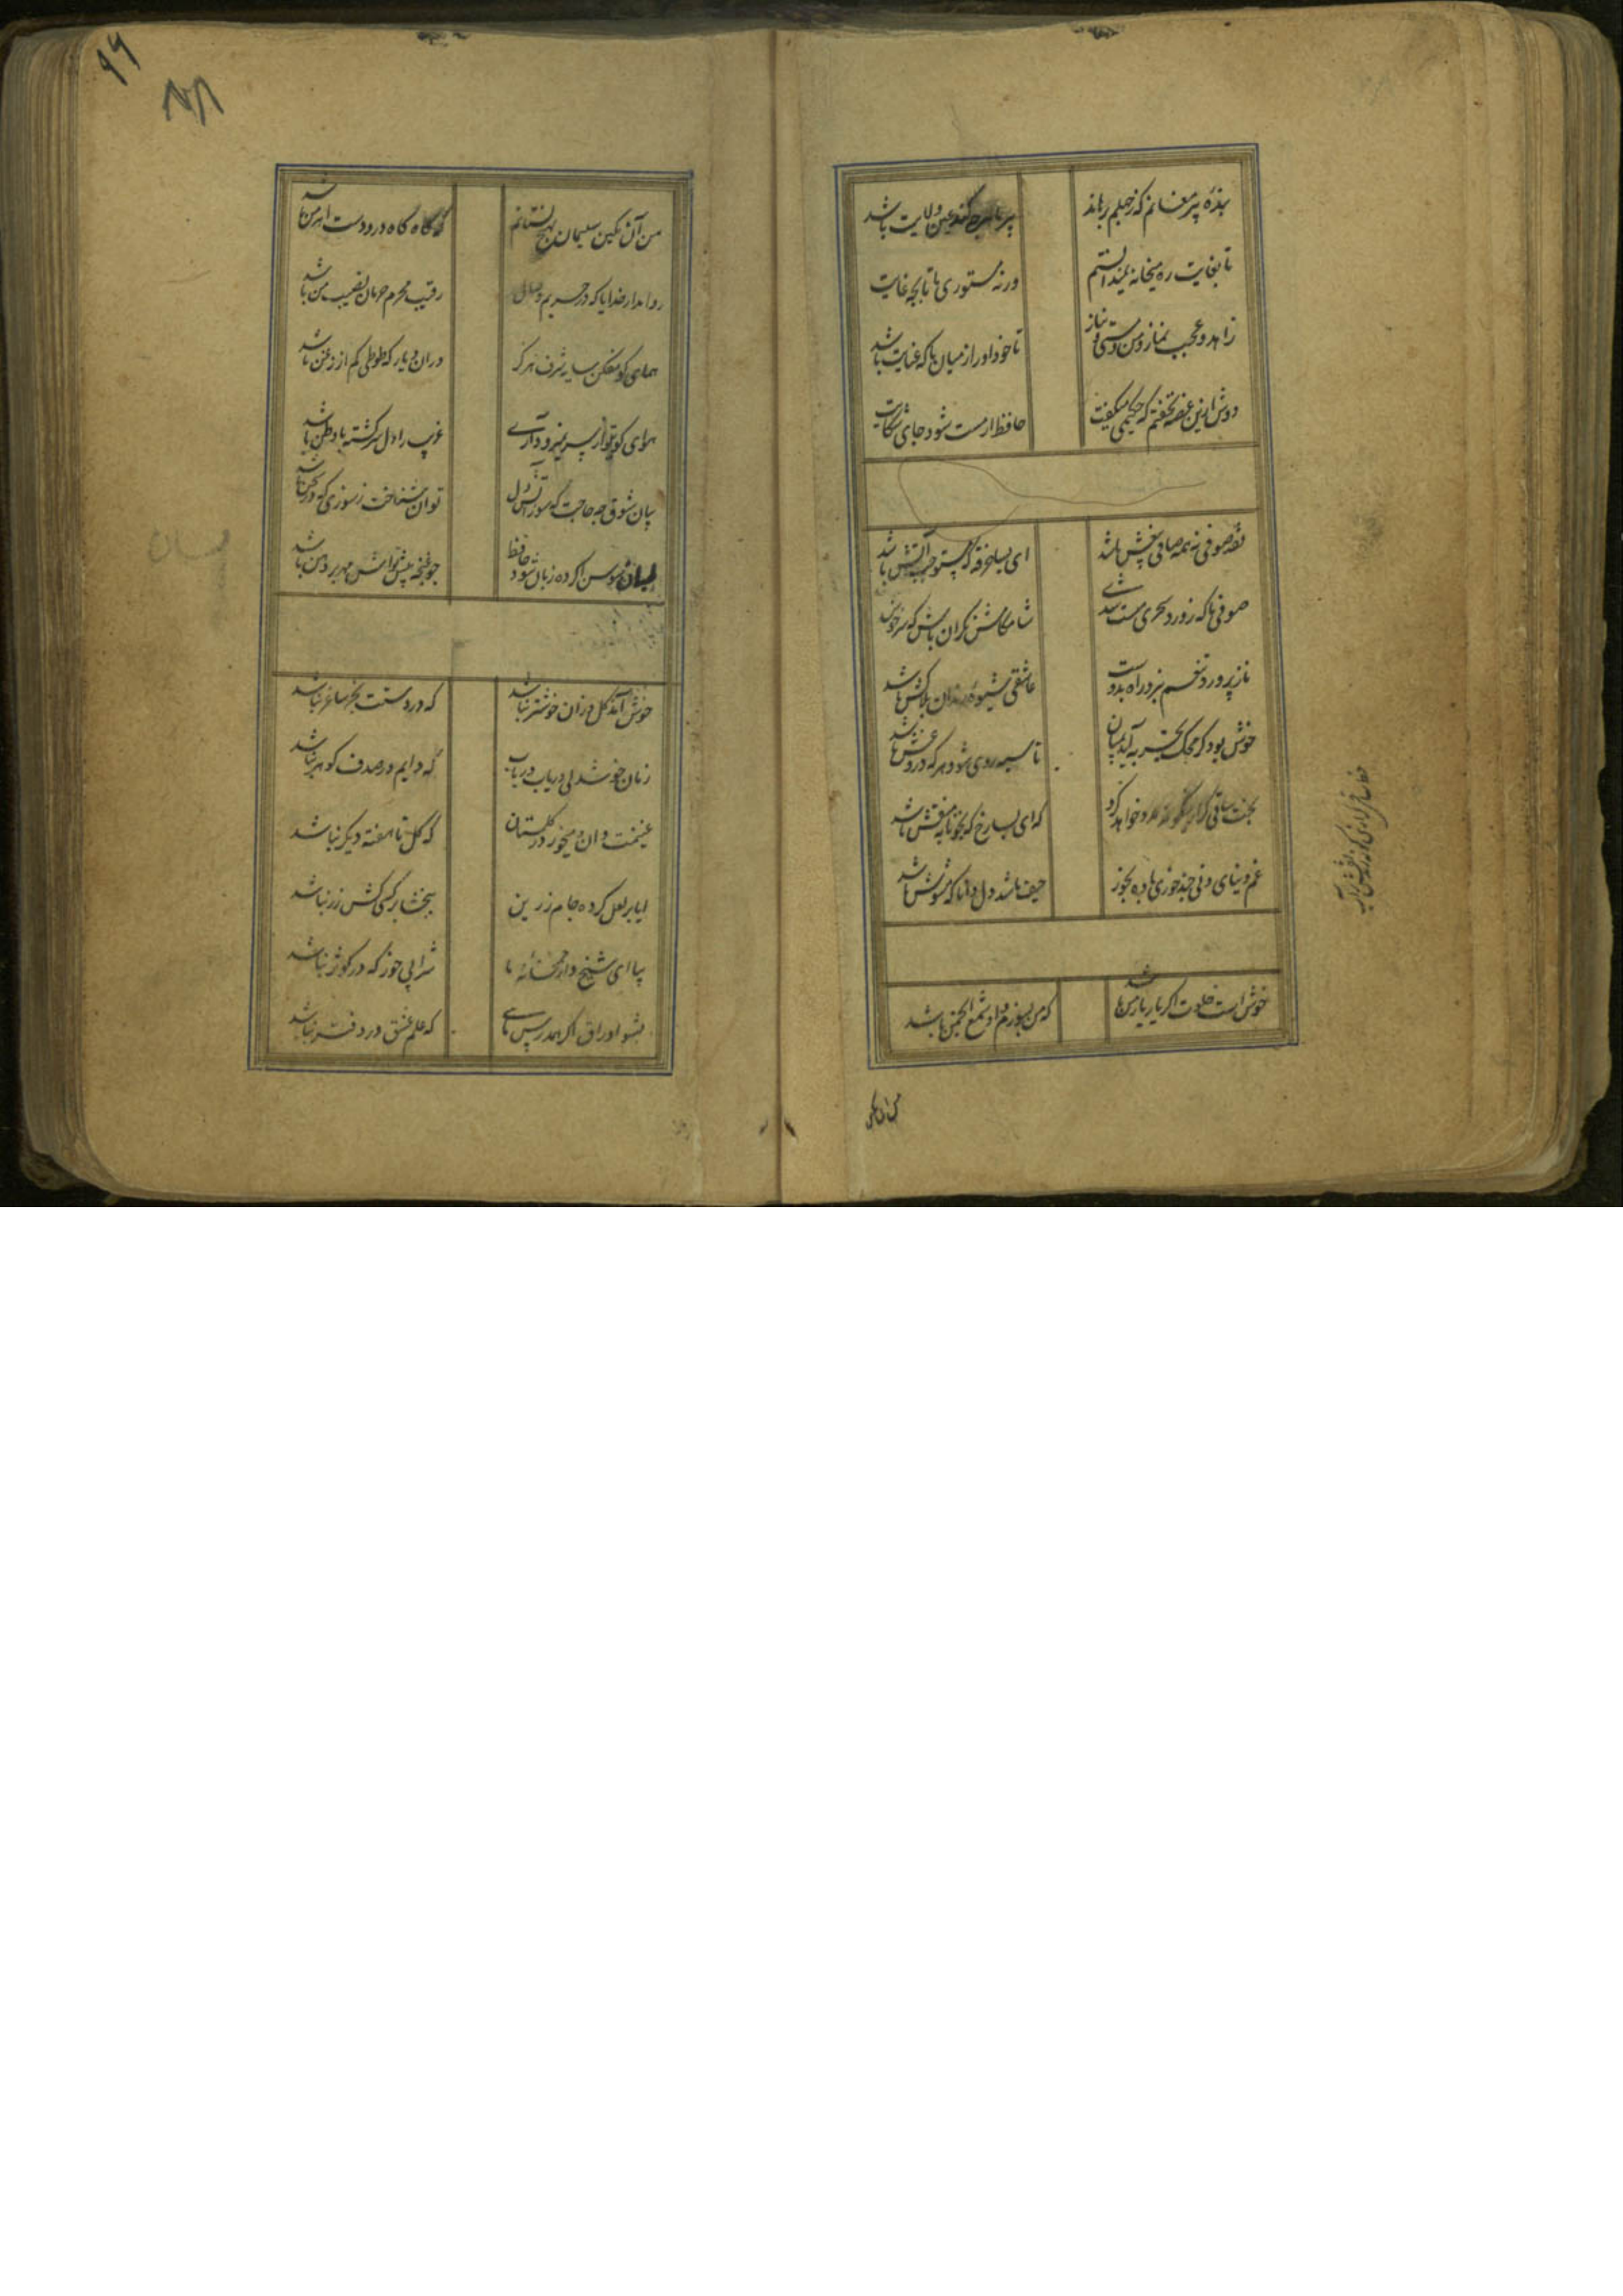 بندهٔ پیر مغانم که ز جهلم برهاند
پیر ما هرچه کند عین ولایت باشد
تا بغایت ره میخانه نمیدانستم
ورنه مستوری ما تا بچه غایت
زاهد و عجب نماز و من و مستی و نیاز
تا خود او را ز میان با که عنایت باشد
دوش ازین غصه نخفتم که حکیمی میگفت
حافظ ار مست شود جای شکایت
نقد صوفی نه همه صافی بیغش باشد
ای بسا خرقه که مستوجب آتش باشد
صوفی ما که ز ورد سحری مست شدی
شامگاهش نگران باش که سرخوش
نازپرورد تنعم نبرد راه بدوست
عاشقی شیوهٔ رندان بلاکش باشد
خوش بود گر محک تجربه آید بمیان
تا سیه روی شود هرکه دروغش باشد
خط ساقی گر ازین گونه زند
که ای بسا رخ که بخونابه منقش باشد
غم دنیای دنی چند خوری باده بخور
حیف باشد دل دانا که مشوش باشد
خوش است خلوت اگر یار یار من باشد
که من بسوزم و او شمع انجمن باشد
من آن نگین
۹۹
من آن نگین سلیمان بهیچ نستانم
که گاه گاه درو دست اهرمن باشد
روا مدار خدایا که در حریم وصال
رقیب محرم و حرمان نصیب من باشد
همای گو مفکن سایه شرف هرگز
در آن دیار که طوطی کم از زغن باشد
هوای کوی تو از سر نمیرود آری
غریب را دل سرگشته با وطن باشد
بیان شوق چه حاجت که سوز آتش دل
توان شناخت ز سوزی که در سخن باشد
بسان سوسن اگر ده زبان شود حافظ
چو غنچه پیش تواش مهر بر دهن باشد
خوش آمد گل وزان خوشتر نباشد
که در دستت بجز ساغر نباشد
زمان خوشدلی دریاب دریاب
که دایم در صدف گوهر نباشد
غنیمت دان و میخور در گلستان
که گل تا هفته دیگر نباشد
ایا پر لعل کرده جام زرین
ببخشا بر کسی کش زر نباشد
بیا ای شیخ و از خمخانه ما
شرابی خور که در کوثر نباشد
بشو اوراق اگر همدرس مایی
که علم عشق در دفتر نباشد